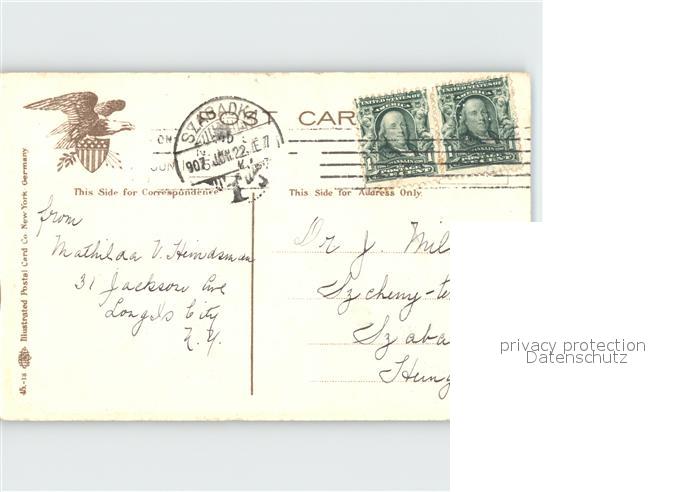 POST CAR
SZABADKA
907 JUN. 22.
UNITED STATES OF AMERICA
UNITED STATES OF AMERICA
This Side for Correspondence
This Side for Address Only
from
Mathilda V. Heindsman
31 Jackson Ave
Long Is City
N.Y.
Dr J. Mil
Szcheny-te
Szaba
Hung
4k-18 Illustrated Postal Card Co. New York, Germany
privacy protection
Datenschutz